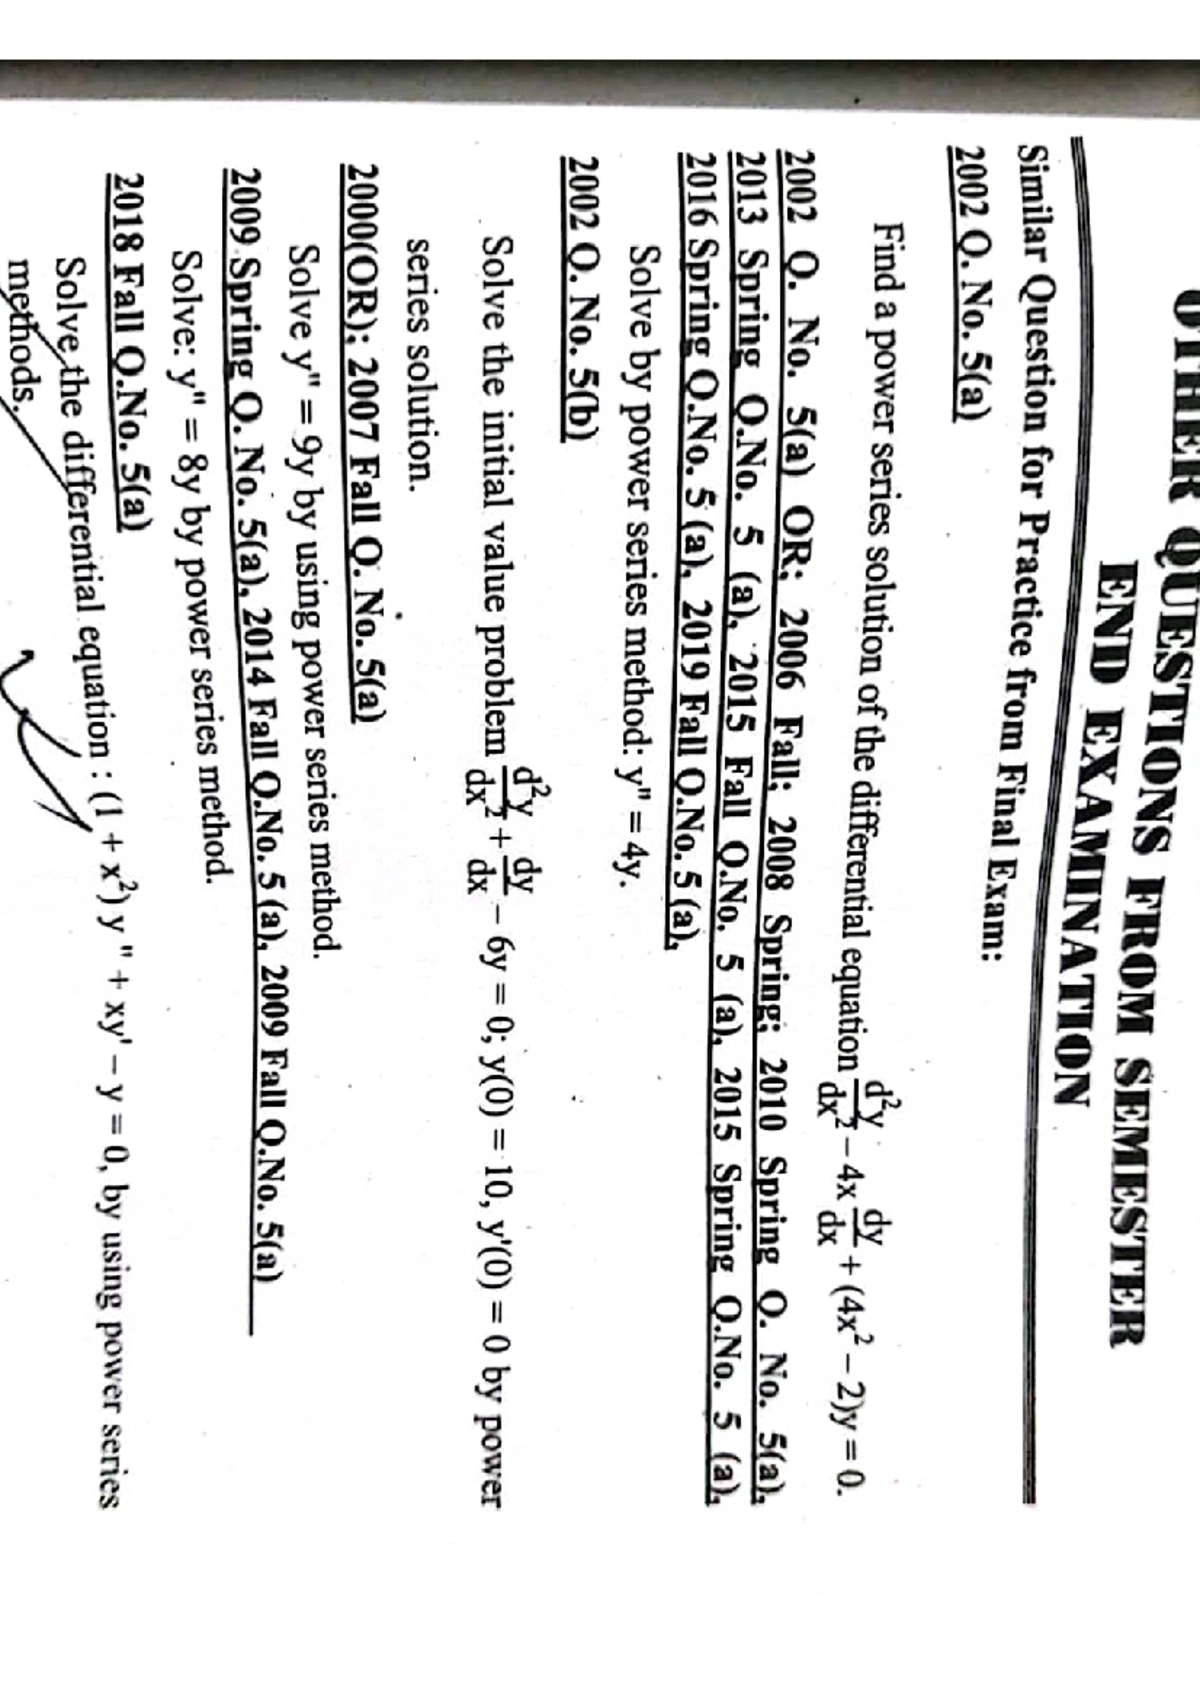 OTHER QUESTIONS FROM SEMESTER
END EXAMINATION
Similar Question for Practice from Final Exam:
2002 Q. No. 5(a)
Find a power series solution of the differential equation d²y/dx² – 4x dy/dx + (4x² – 2)y = 0.
2002 Q. No. 5(a) OR; 2006 Fall; 2008 Spring; 2010 Spring Q. No. 5(a),
2013 Spring Q.No. 5 (a), 2015 Fall Q.No. 5 (a), 2015 Spring Q.No. 5 (a),
2016 Spring Q.No. 5 (a), 2019 Fall Q.No. 5 (a),
Solve by power series method: y" = 4y.
2002 Q. No. 5(b)
Solve the initial value problem d²y/dx² + dy/dx – 6y = 0; y(0) = 10, y'(0) = 0 by power
series solution.
2000(OR); 2007 Fall Q. No. 5(a)
Solve y" = 9y by using power series method.
2009 Spring Q. No. 5(a), 2014 Fall Q.No. 5 (a), 2009 Fall Q.No. 5(a)
Solve: y" = 8y by power series method.
2018 Fall Q.No. 5(a)
Solve the differential equation : (1 + x²) y " + xy' – y = 0, by using power series
methods.